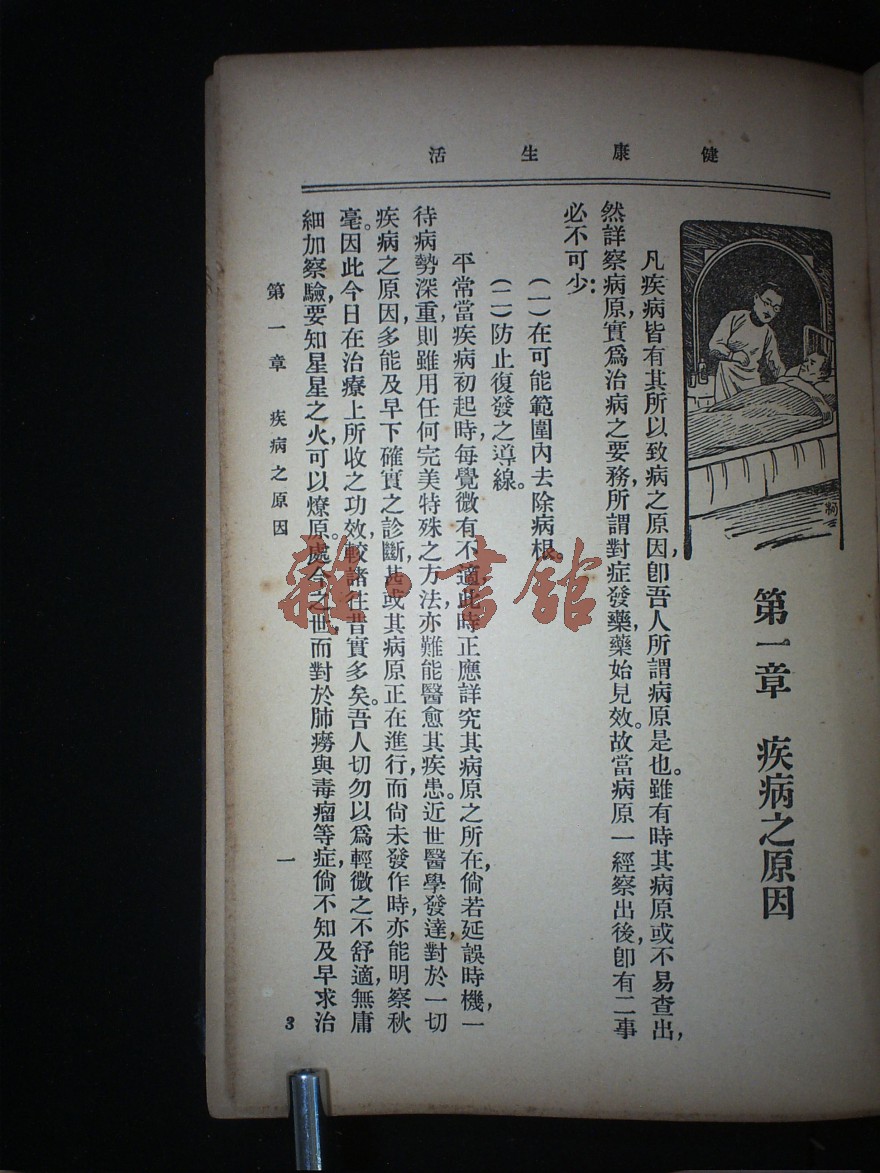 健康生活
第一章　疾病之原因
凡疾病皆有其所以致病之原因，卽吾人所謂病原是也。雖有時其病原或不易查出，
然詳察病原，實爲治病之要務，所謂對症發藥，藥始見效。故當病原一經察出後，卽有二事
必不可少：
（一）在可能範圍內去除病根。
（二）防止復發之導線。
平常當疾病初起時，每覺微有不適，此時正應詳究其病原之所在，倘若延誤時機，一
待病勢深重，則雖用任何完美特殊之方法，亦難能醫愈其疾患。近世醫學發達，對於一切
疾病之原因，多能及早下確實之診斷，甚或其病原正在進行，而尙未發作時，亦能明察秋
毫。因此今日在治療上所收之功效，較諸往昔實多矣。吾人切勿以爲輕微之不舒適，無庸
細加察驗，要知星星之火，可以燎原。處今之世，而對於肺癆與毒瘤等症，倘不知及早求治
第一章　疾病之原因
一
3
雜·書舘